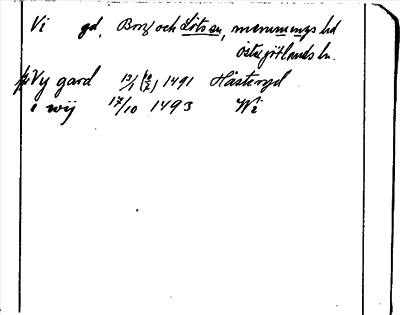 Vi gd, Borg och Löts sn, Memmings hd
Östergötlands ln.
på Vy gard 13/1 (8/2) 1491 Hästergd
i wij 17/10 1493 Wi